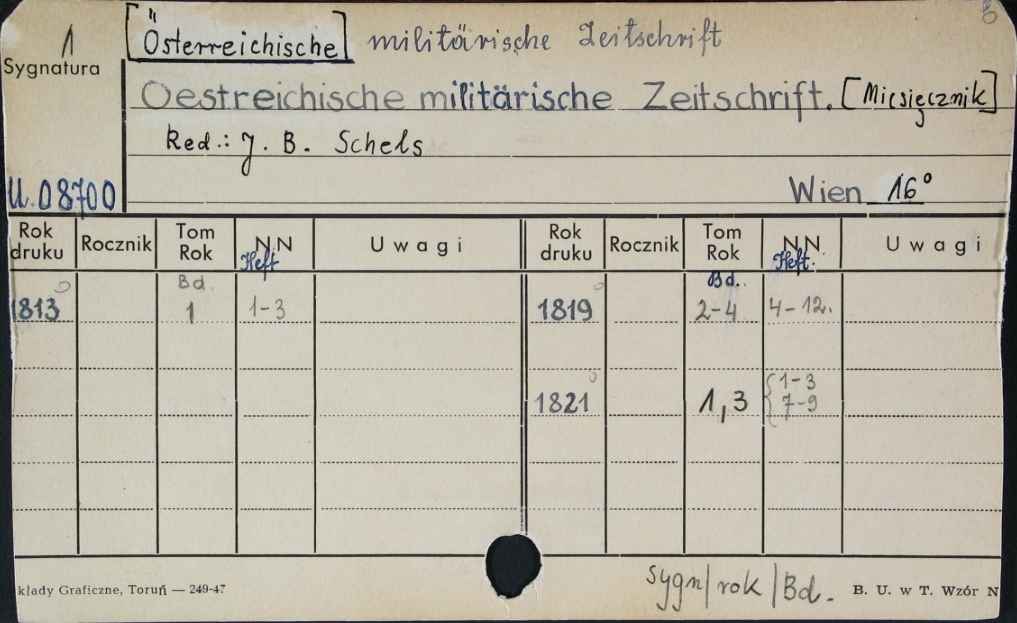 1 [Österreichische] militärische Zeitschrift
Sygnatura
Oestreichische militärische Zeitschrift. [Miesięcznik]
Red.: J. B. Schels
U.08700
Wien 16°
Rok druku Rocznik Tom Rok NN Heft Uwagi Rok druku Rocznik Tom Rok NN Heft. Uwagi
Bd. Bd.
1813 1 1-3 1819 2-4 4-12.
1821 1,3 { 1-3
7-9
sygn/rok/Bd.
kłady Graficzne, Toruń — 249-47 B. U. w T. Wzór N